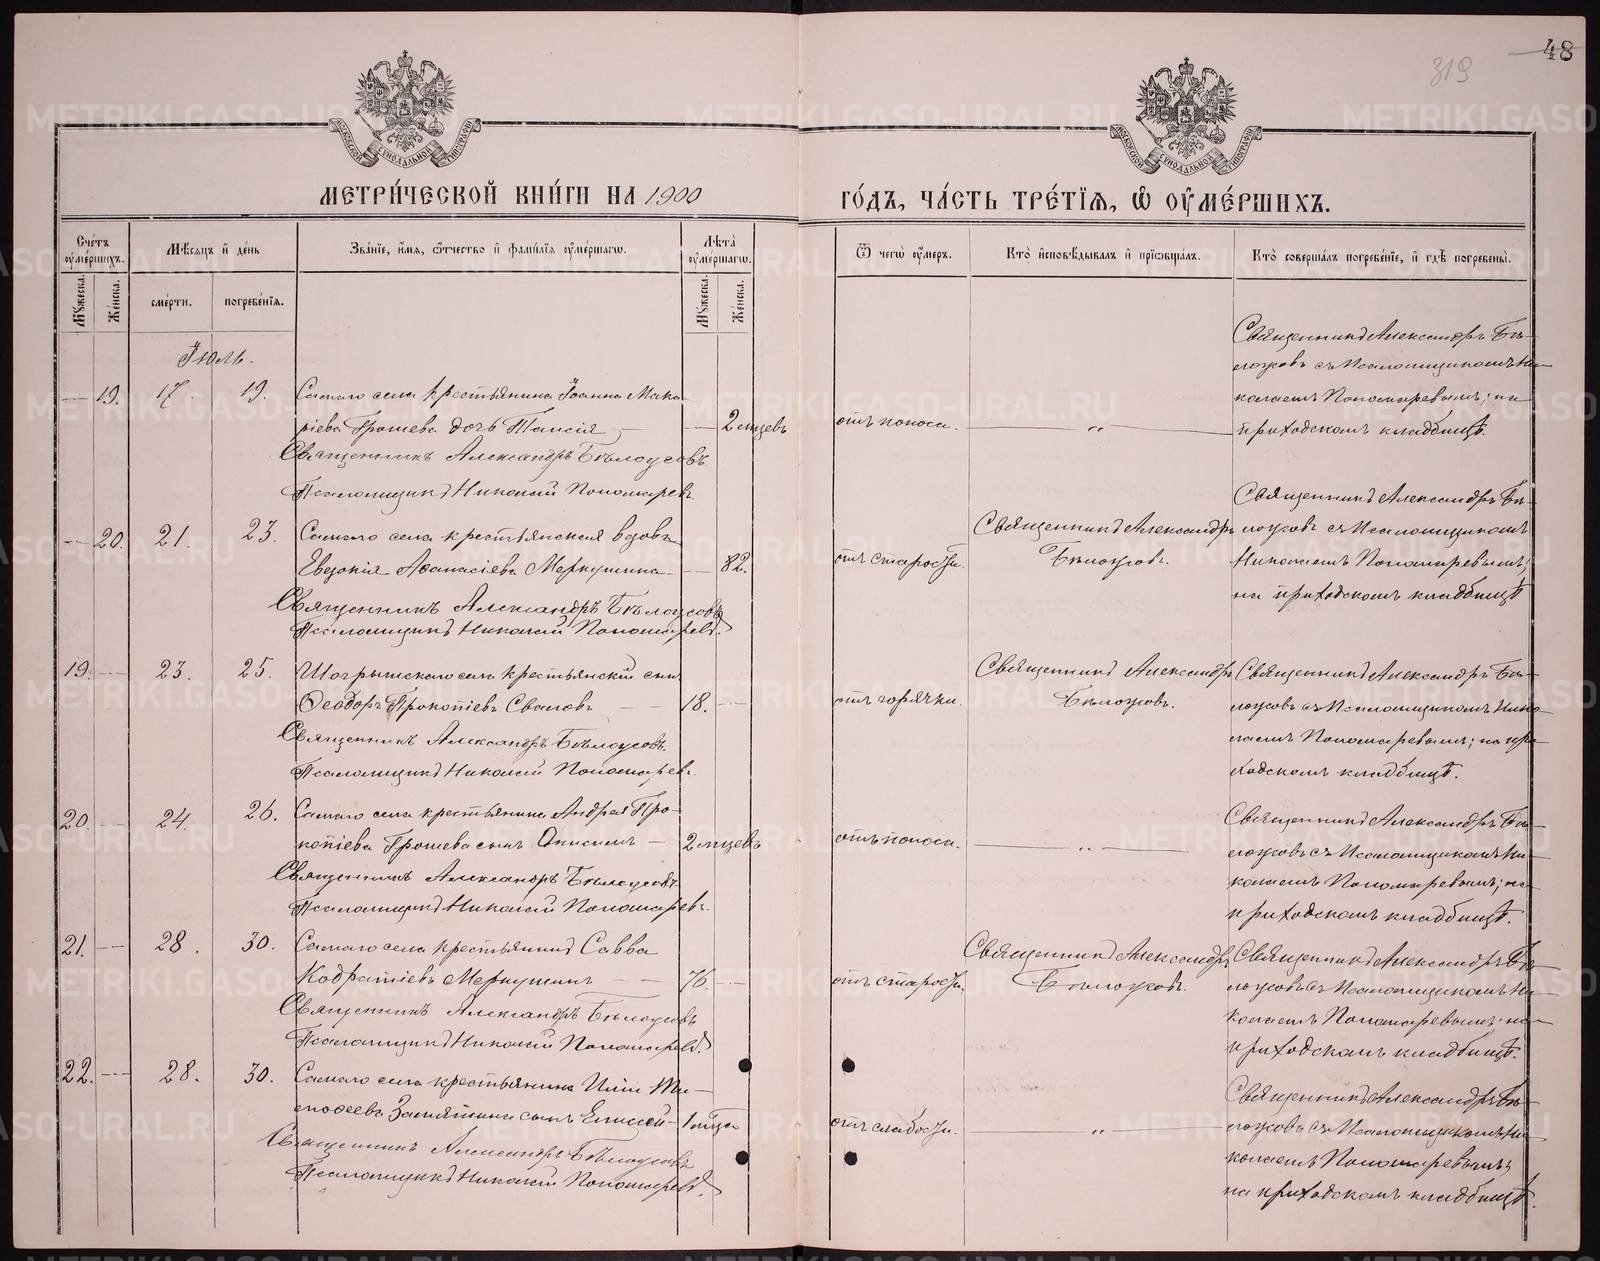 48
319
МЕТРИ́ЧЕСКОЙ КНИ́ГИ НА 1900
ГО́ДЪ, ЧА́СТЬ ТРЕ́ТІѦ, Ѡ҆ ОУ҆МЕ́РШИХЪ.
Счетъ оумершихъ.
Мѣсяцъ и день
Званіе, имя, отчество и фамилія оумершаго.
Лѣта оумершаго.
Мужеска.
Женска.
смерти.
погребенія.
Мужеска.
Женска.
Ѿ чего оумеръ.
Кто исповѣдывалъ и пріобщалъ.
Кто совершалъ погребеніе, и гдѣ погребены.
Іюль.
— 19. 17. 19. Самаго села крестьянина Іоанна Мака-
ріева Грошева дочь Таисія — — 2 мцевъ
Священникъ Александръ Бѣлоусовъ
Псаломщикъ Николай Пономаревъ.
отъ поноса.
— „ —
Священникъ Александръ Бѣ-
лоусовъ съ Псаломщикомъ Ни-
колаемъ Пономаревымъ; на
приходскомъ кладбищѣ.
— 20. 21. 23. Самаго села крестьянская вдова
Евдокія Аѳанасіева Меркушина — — 82.
Священникъ Александръ Бѣлоусовъ
Псаломщикъ Николай Пономаревъ.
отъ старости.
Священникъ Александръ
Бѣлоусовъ.
Священникъ Александръ Бѣ-
лоусовъ съ Псаломщикомъ
Николаемъ Пономаревымъ;
на приходскомъ кладбищѣ
19. — 23. 25. Шогрышскаго села крестьянскій сынъ
Ѳеодоръ Прокопіевъ Сваловъ — — 18. —
Священникъ Александръ Бѣлоусовъ.
Псаломщикъ Николай Пономаревъ.
отъ горячки.
Священникъ Александръ
Бѣлоусовъ.
Священникъ Александръ Бѣ-
лоусовъ съ Псаломщикомъ Нико-
лаемъ Пономаревымъ; на при-
ходскомъ кладбищѣ.
20. — 24. 26. Самаго села крестьянина Андрея Про-
копіева Грошева сынъ Онисимъ — 2 мцевъ
Священникъ Александръ Бѣлоусовъ
Псаломщикъ Николай Пономаревъ.
отъ поноса.
— „ —
Священникъ Александръ Бѣ-
лоусовъ съ Псаломщикомъ Ни-
колаемъ Пономаревымъ; на
приходскомъ кладбищѣ.
21. — 28. 30. Самаго села крестьянинъ Савва
Кодратіевъ Меркушинъ — — 76. —
Священникъ Александръ Бѣлоусовъ
Псаломщикъ Николай Пономаревъ.
отъ старости.
Священникъ Александръ
Бѣлоусовъ.
Священникъ Александръ Бѣ-
лоусовъ съ Псаломщикомъ Ни-
колаемъ Пономаревымъ; на
приходскомъ кладбищѣ.
22. — 28. 30. Самаго села крестьянина Иліи Ти-
моѳеева Замятина сынъ Елисей — 1 мѣца
Священникъ Александръ Бѣлоусовъ
Псаломщикъ Николай Пономаревъ.
отъ слабости.
— „ —
Священникъ Александръ Бѣ-
лоусовъ съ Псаломщикомъ Ни-
колаемъ Пономаревымъ;
на приходскомъ кладбищѣ.
METRIKI.GASO-URAL.RU